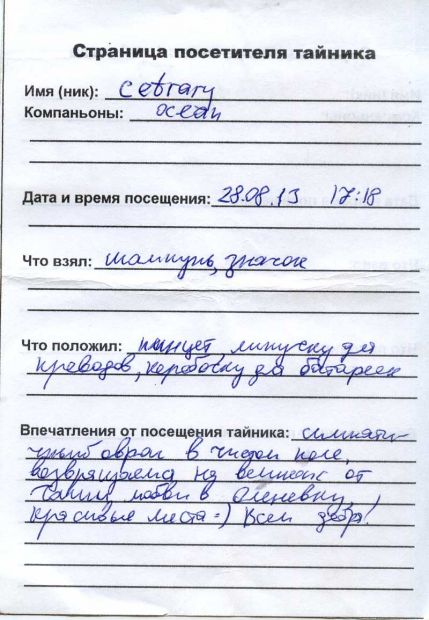 Страница посетителя тайника
Имя (ник): cebrary
Компаньоны: ocean
Дата и время посещения: 28.08.13 17:18
Что взял: шампунь, значок
Что положил: пинцет, липучку для
проводов, коробочку для батареек
Впечатления от посещения тайника: симпати-
чный овраг в чистом поле,
возвращаемся на велике от
Чаши любви в Оленевку,
красивые места =) Всем добра!